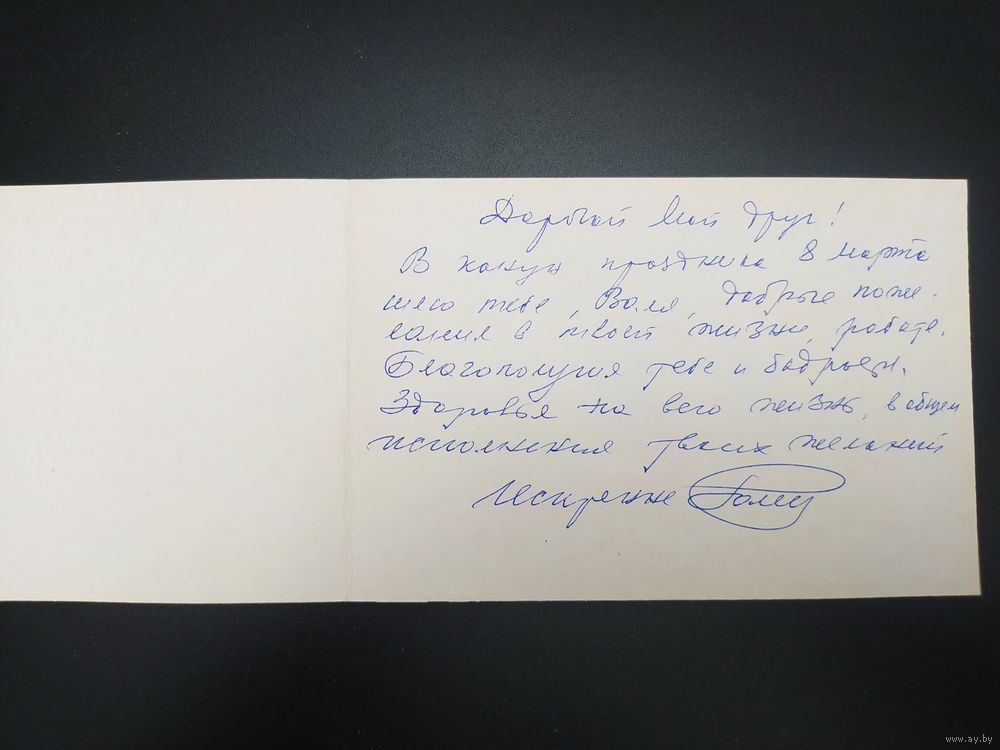 Дорогой Мой друг!
В канун праздника 8 марта
шлю тебе, Валя, добрые поже-
лания в твоей жизни, работе.
Благополучия тебе и бодрости.
Здоровья на всю жизнь, в общем
исполнения твоих желаний
Искренне
www.ay.by